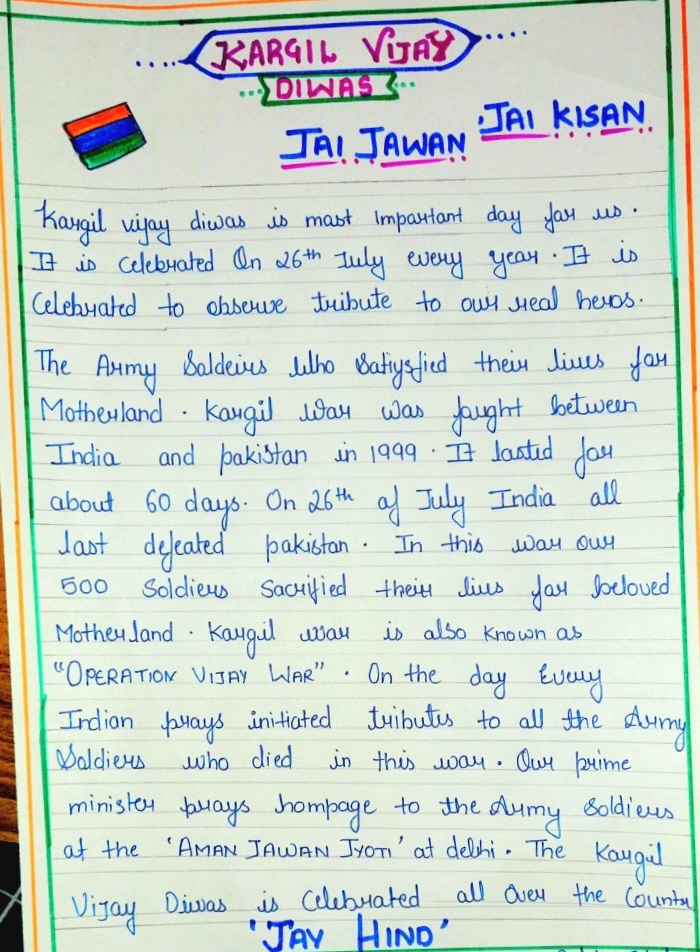 KARGIL VIJAY
DIWAS
JAI JAWAN JAI KISAN
Kargil vijay diwas is mast Impartant day far us.
It is celebrated On 26th July every year. It is
Celebrated to observe tribute to our real heros.
The Army Saldeirs who Satiysfied their lives far
Motherland. Kargil War was faught between
India and pakistan in 1999. It lasted far
about 60 days. On 26th of July India all
last defeated pakistan. In this war our
500 Soldiers Sacrified their lius far beloved
Motherland. Kargil war is also known as
"OPERATION VIJAY WAR". On the day Every
Indian prays initiated tributes to all the Army
Soldiers who died in this war. Our prime
minister prays hompage to the Army Soldiers
at the 'AMAN JAWAN JYOTI' at delhi. The Kargil
Vijay Diwas is Celebrated all Over the County
'JAY HIND'